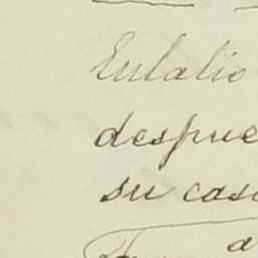 Eulalio
despue
su casa